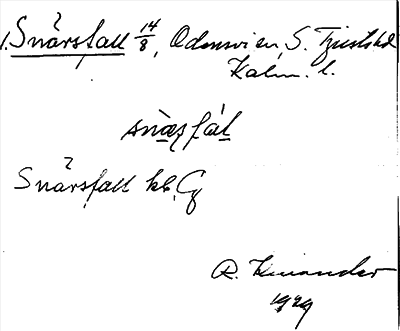 1. Snårsfall 14/8, Odensvi en, S. Tjusts hd
Kalm. l.
snæsfál
Snårsfall kb. Cg
R. Kinander
1929